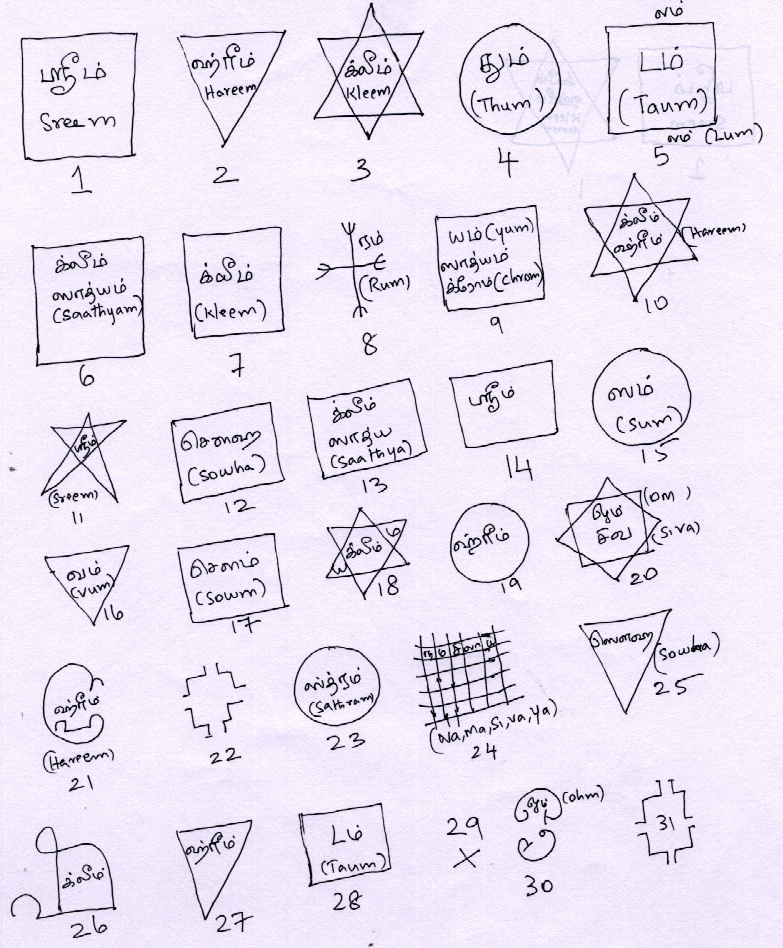 ஸ்ரீம்
Sreem
1
ஹ்ரீம்
Hareem
2
க்லீம்
Kleem
3
தும்
(Thum)
4
லம்
டம்
(Taum)
லம் (Lum)
5
க்லீம்
ஸாத்யம்
(Saathyam)
6
க்லீம்
(Kleem)
7
ரம்
(Rum)
8
யம் (yum)
ஸாத்யம்
க்ரோம் (Chrom)
9
க்லீம்
ஹ்ரீம் (Hareem)
10
ஸ்ரீம்
(Sreem)
11
சௌஹ
(Sowha)
12
க்லீம்
ஸாத்ய
(Saathya)
13
ஸ்ரீம்
14
ஸம்
(Sum)
15
வம்
(Vum)
16
சௌம்
(Sowm)
17
ம
க்லீம்
ய
18
ஹ்ரீம்
19
ஓம் (Om)
சிவ (Siva)
20
ஹ்ரீம்
(Hareem)
21
22
(Sathram)
23
ந ம சி வா ய
(Na, Ma, Si, Va, Ya)
24
ஸௌஹ (Sowha)
25
க்லீம்
26
ஹ்ரீம்
27
டம்
(Taum)
28
29
ஓம் (ohm)
30
31